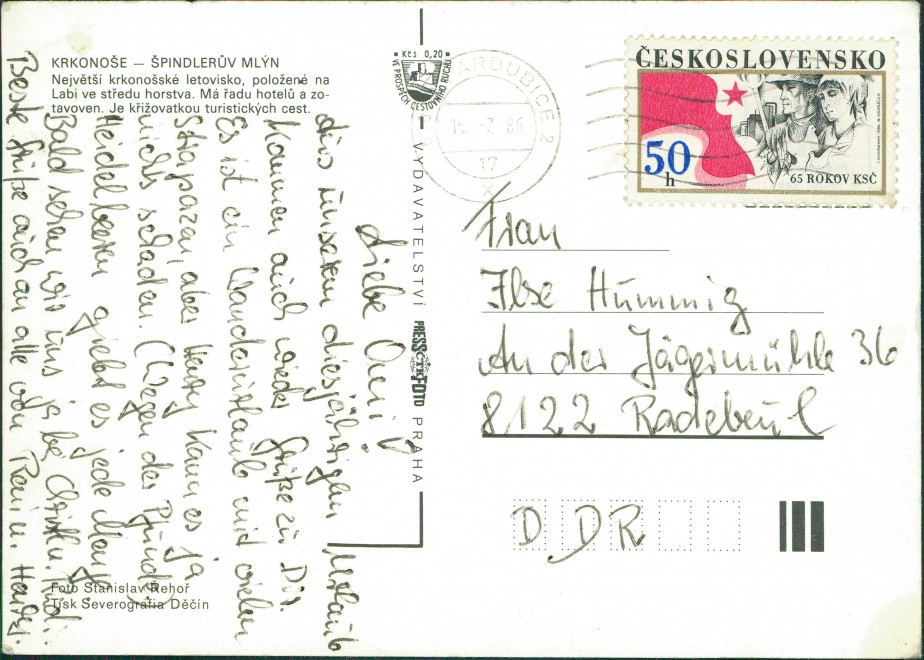 KRKONOŠE — ŠPINDLERŮV MLÝN
Největší krkonošské letovisko, položené na
Labi ve středu horstva. Má řadu hotelů a zo-
tavoven. Je křižovatkou turistických cest.
Kčs 0,20
VE PROSPĚCH CESTOVNÍHO RUCHU
PARDUBICE 2
-7. 86
17
x
ČESKOSLOVENSKO
50
h
65 ROKOV KSČ
Liebe Omi!
Aus unserem diesjährigen Urlaub
kommen auch wieder Grüße zu Dir.
Es ist ein Wanderurlaub mit vielen
Strapazen, aber Hardy kann es ja
nichts schaden. (Wegen der Pfunde)
Heidelbeeren giebt es jede Menge
Bald sehen wir uns ja bei
Beste Grüße auch an alle von Hardy.
VYDAVATELSTVÍ PRESSFOTO PRAHA
ČTK
Frau
Ilse Hümmig
An der Jägermühle 36
8122 Radebeul
DDR
Foto Stanislav Řehoř
Tisk Severografia Děčín